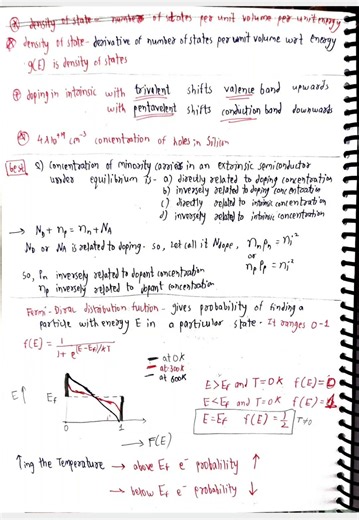 density of state = number of states per unit volume per unit energy
density of state - derivative of number of states per unit volume wrt energy
g(E) is density of states
doping in intrinsic with trivalent shifts valence band upwards
with pentavalent shifts conduction band downwards
cm⁻³ concentration of holes in Silicon
best
Q) Concentration of minority carriers in an extrinsic semiconductor
under equilibrium is - a) directly related to doping concentration
b) inversely related to doping concentration
c) directly related to intrinsic concentration
d) inversely related to intrinsic concentration
→ N_D + n_p = n_n + N_A
N_D or N_A is related to doping. so, let call it N_dope, n_n p_n = n_i^-2
or
n_p p_p = n_i^-2
So, p_n inversely related to dopant concentration
n_p inversely related to dopant concentration
Fermi-Dirac distribution fuction - gives probability of finding a
particle with energy E in a particular state. It ranges 0-1
f(E) = 1 / 1 + e^(E-E_f)/kT
— at 0K
— at 300K
— at 600K
E↑ E_f
E>E_f and T=0K f(E)=0
E<E_f and T=0K f(E)=1
E=E_f f(E)=1/2 T≠0
0 1
→ F(E)
↑ing the Temperature → above E_f e⁻ probability ↑
→ below E_f e⁻ probability ↓